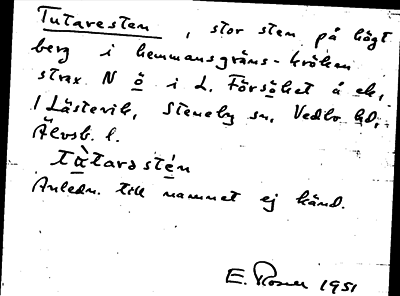 Tutaresten, stor sten på högt
berg i hemmansgräns-kröken
strax N ö i L. Försöket å ek.
/ Lästervik, Steneby sn, Vedbo hd,
Älvsb. l.
tàtarəstén
Anledn. till namnet ej känd.
E. 1951